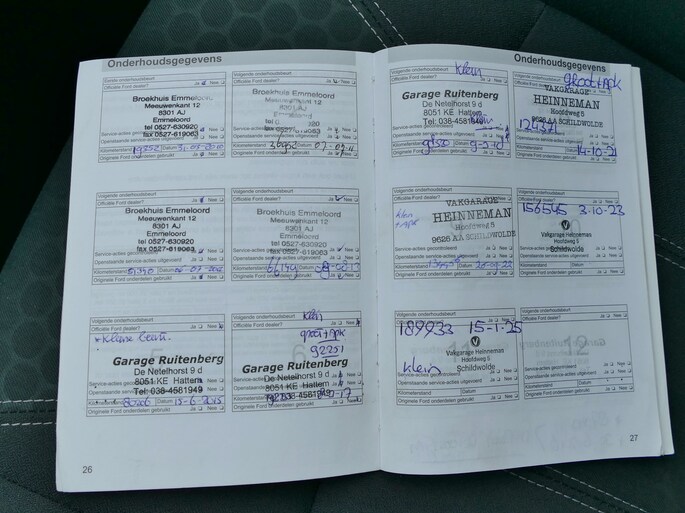 Onderhoudsgegevens
Eerste onderhoudsbeurt
Officiële Ford dealer? Ja Nee
Broekhuis Emmeloord
Meeuwenkant 12
8301 AJ
Emmeloord
tel 0527-630920
fax 0527-619063
Service-acties gecontroleerd
Openstaande service-acties uitgevoerd Ja Nee
Kilometerstand Datum
Originele Ford onderdelen gebruikt? Ja Nee
Volgende onderhoudsbeurt
Officiële Ford dealer? Ja Nee
Broekhuis Emmeloord
Meeuwenkant 12
8301 AJ
Emmeloord
fax 0527-619063
Service-acties gecontroleerd
Openstaande service-acties uitgevoerd Ja Nee
Kilometerstand Datum
Originele Ford onderdelen gebruikt? Ja Nee
Volgende onderhoudsbeurt
Officiële Ford dealer? Ja Nee
Broekhuis Emmeloord
Meeuwenkant 12
8301 AJ
Emmeloord
tel 0527-630920
fax 0527-619063
Service-acties gecontroleerd
Openstaande service-acties uitgevoerd Ja Nee
Kilometerstand Datum
Originele Ford onderdelen gebruikt? Ja Nee
Volgende onderhoudsbeurt
Officiële Ford dealer? Ja Nee
Broekhuis Emmeloord
Meeuwenkant 12
8301 AJ
Emmeloord
tel 0527-630920
fax 0527-619063
Service-acties gecontroleerd
Openstaande service-acties uitgevoerd Ja Nee
Kilometerstand Datum
Originele Ford onderdelen gebruikt? Ja Nee
Volgende onderhoudsbeurt
Officiële Ford dealer? Ja Nee
Garage Ruitenberg
De Netelhorst 9 d
8051 KE Hattem
Tel: 038-4581949
Datum 15-6-2015
Originele Ford onderdelen gebruikt? Ja Nee
Volgende onderhoudsbeurt
Klein
Officiële Ford dealer? Ja Nee
groot + apk
92251
Garage Ruitenberg
De Netelhorst 9 d
8051 KE Hattem
Tel: 038-4581949
Originele Ford onderdelen gebruikt? Ja Nee
26
Onderhoudsgegevens
Volgende onderhoudsbeurt
Klein
Officiële Ford dealer? Ja Nee
Garage Ruitenberg
De Netelhorst 9 d
8051 KE Hattem
Tel: 038-4581949
Service-acties gecontroleerd
Openstaande service-acties uitgevoerd Ja Nee
Kilometerstand Datum
Originele Ford onderdelen gebruikt? Ja Nee
Volgende onderhoudsbeurt
groot + apk
VAKGARAGE
HEINNEMAN
Hoofdweg 5
9626 AA SCHILDWOLDE
124371
Kilometerstand 14-10-21
Originele Ford onderdelen gebruikt? Ja Nee
Volgende onderhoudsbeurt
Officiële Ford dealer? Ja Nee
VAKGARAGE
HEINNEMAN
Hoofdweg 5
9626 AA SCHILDWOLDE
klein
+ apk
Openstaande service-acties uitgevoerd Ja Nee
Kilometerstand Datum
Originele Ford onderdelen gebruikt? Ja Nee
Volgende onderhoudsbeurt
156545 3-10-23
Vakgarage Heinneman
Hoofdweg 5
Schildwolde
Service-acties gecontroleerd
Openstaande service-acties uitgevoerd Ja Nee
Kilometerstand Datum
Originele Ford onderdelen gebruikt? Ja Nee
Volgende onderhoudsbeurt
189933 15-1-25
Vakgarage Heinneman
Hoofdweg 5
Schildwolde
Klein
Service-acties gecontroleerd
Openstaande service-acties uitgevoerd Ja Nee
Kilometerstand Datum
Originele Ford onderdelen gebruikt? Ja Nee
Volgende onderhoudsbeurt
Officiële Ford dealer? Ja Nee
12
Service-acties gecontroleerd Ja Nee
Openstaande service-acties uitgevoerd Ja Nee
Kilometerstand Datum
Originele Ford onderdelen gebruikt? Ja Nee
27